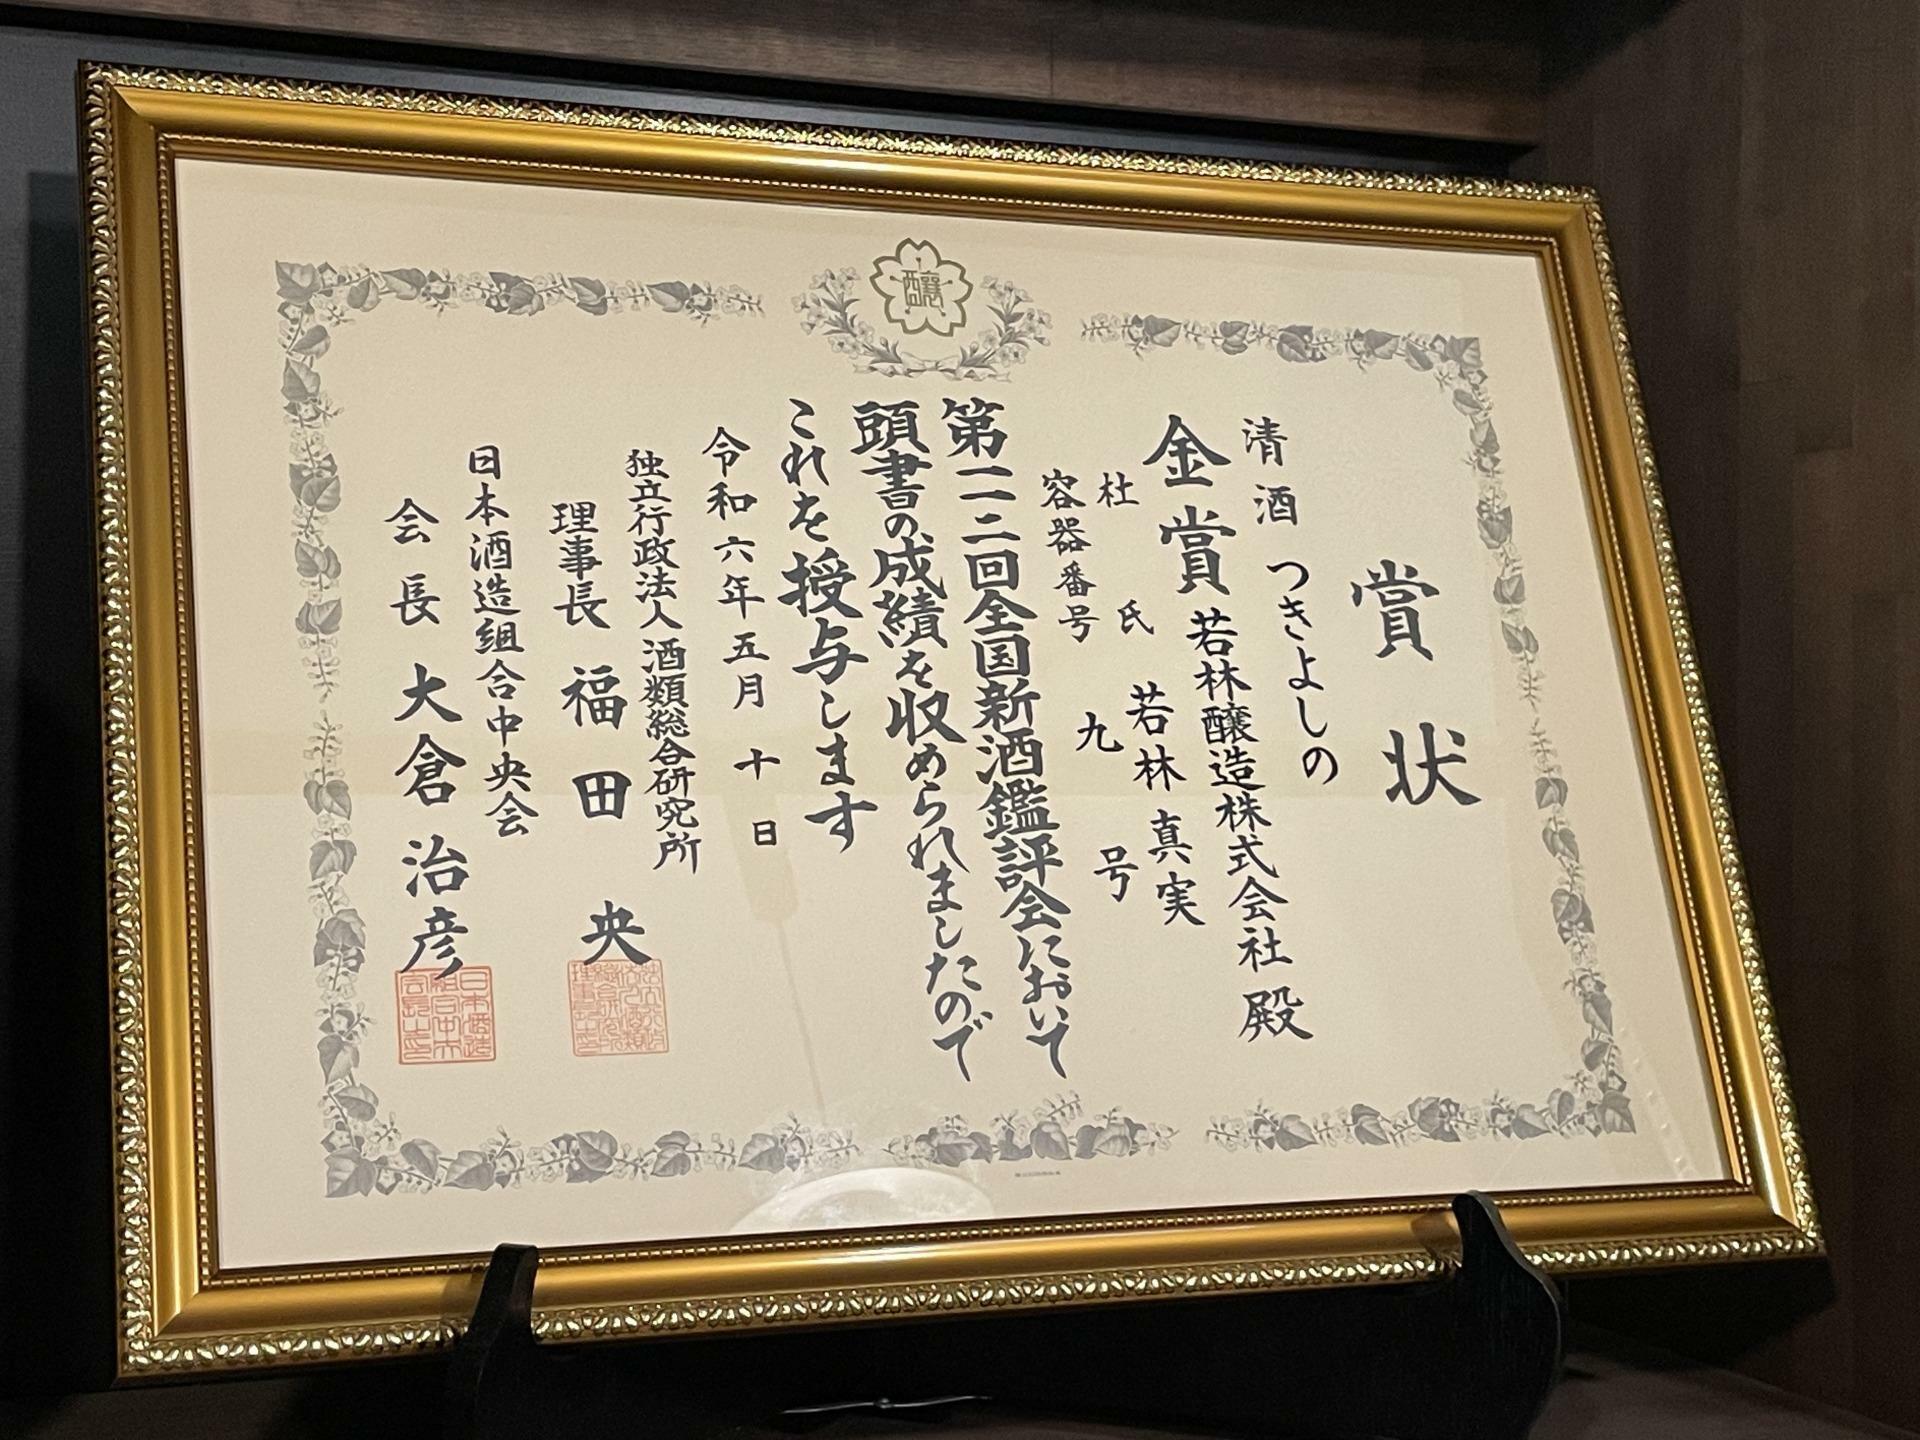 醸
賞状
清酒 つきよしの
金賞 若林醸造株式会社 殿
杜氏 若林真実
容器番号 九号
第一一二回全国新酒鑑評会において
頭書の成績を収められましたので
これを授与します
令和六年五月十日
独立行政法人 酒類総合研究所
理事長 福田 央
日本酒造組合中央会
会長 大倉治彦